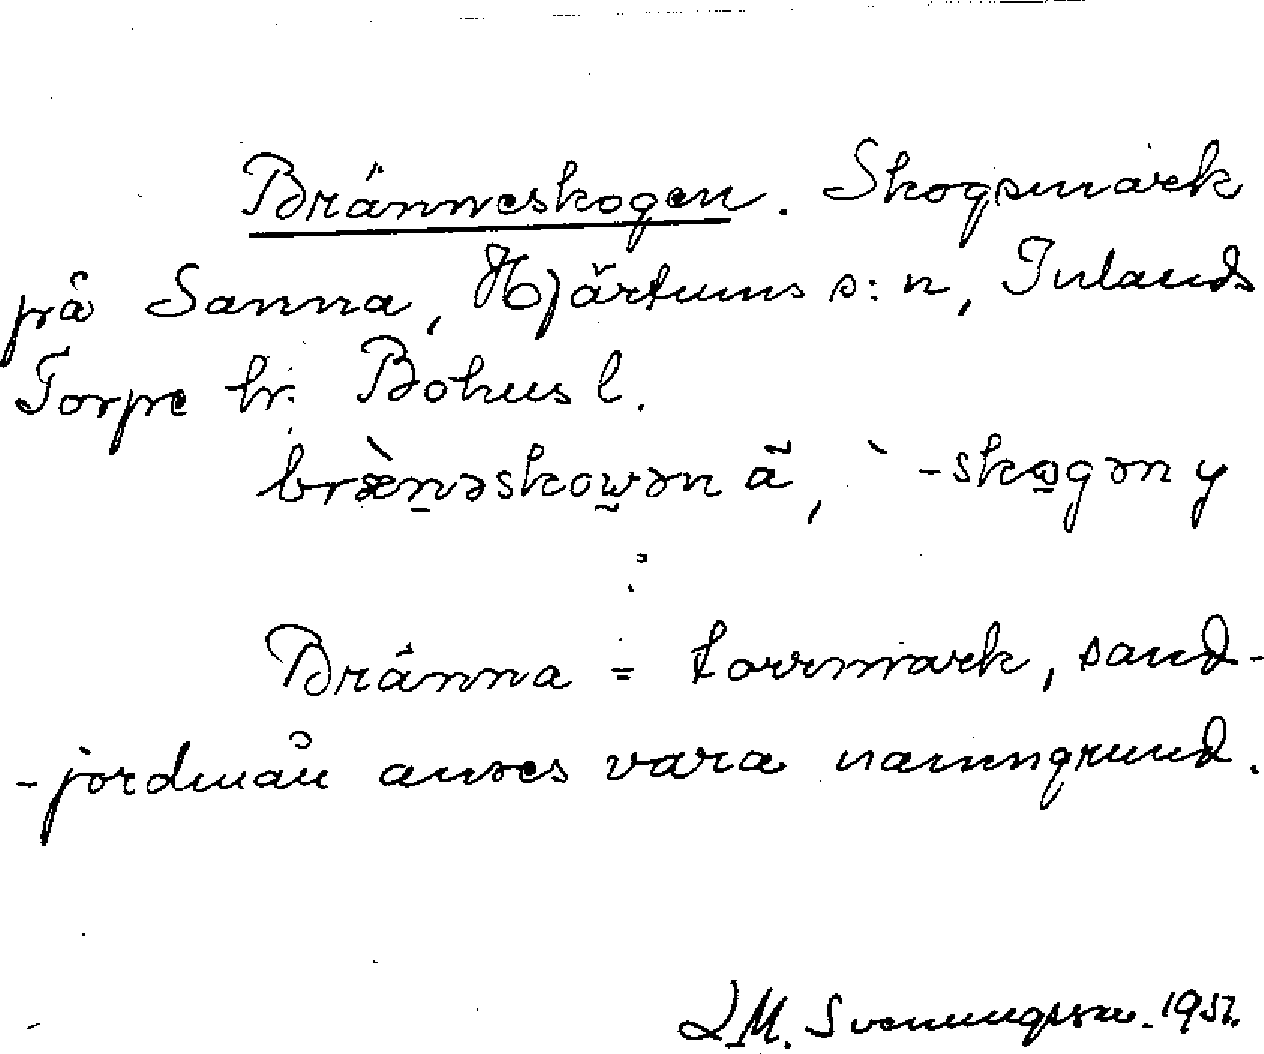 Bränneskogen. Skogsmark
på Sanna, Hjärtums s:n, Inlands
Torpe hr. Bohusl.
bræ̀n̠əskow̰ən ä̃, ̀ -sko̠gən y
Bränna = torrmark, sand-
-jordmån anses vara namngrund.
LM. Svenungsson. 1957.